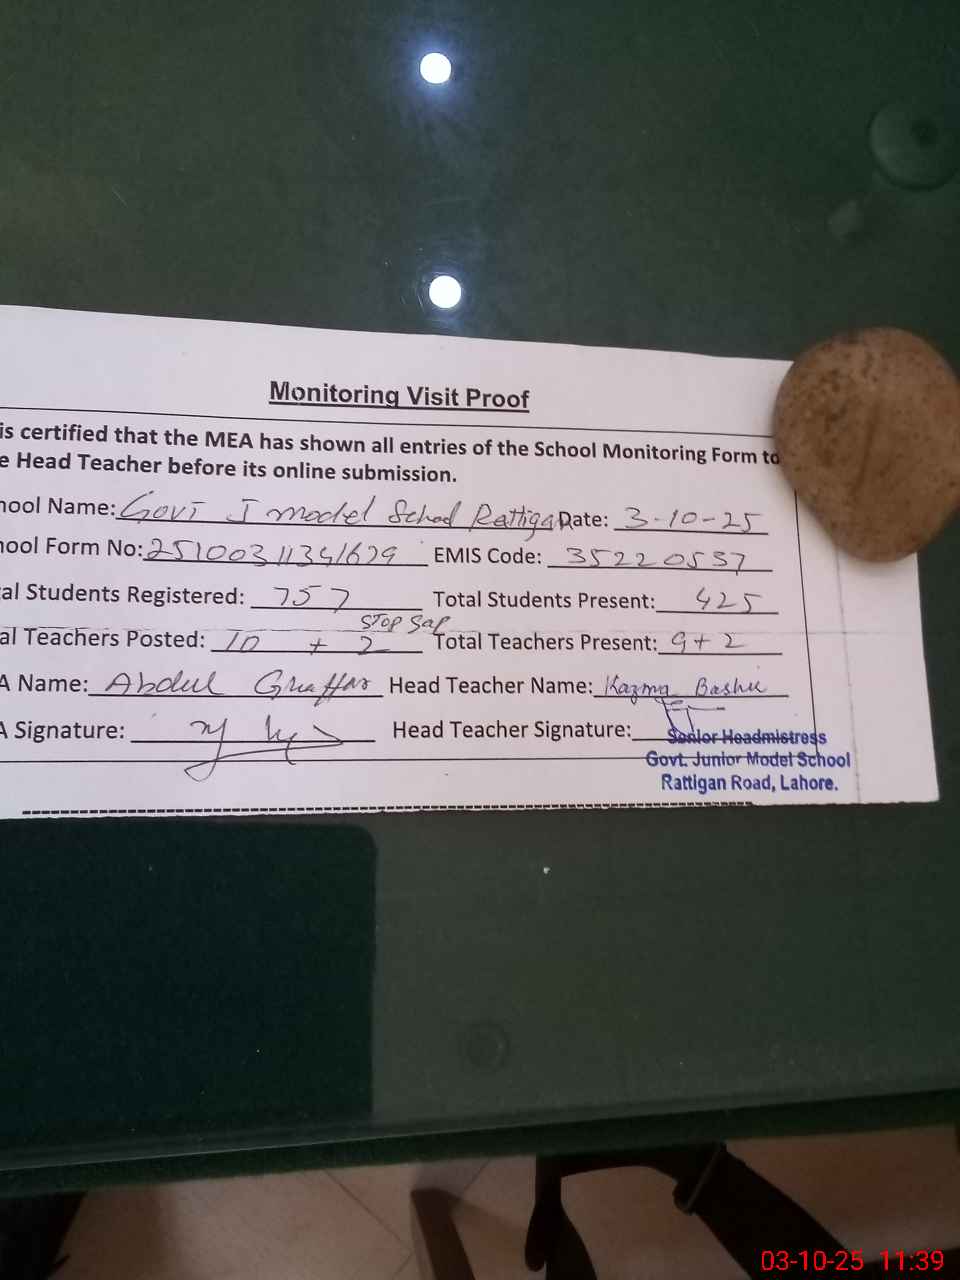 Monitoring Visit Proof
is certified that the MEA has shown all entries of the School Monitoring Form to
e Head Teacher before its online submission.
hool Name: Govt J model School Rattigan Date: 3-10-25
hool Form No: EMIS Code: 35220537
al Students Registered: 757 Total Students Present: 425
stop gap
al Teachers Posted: 10 + 2 Total Teachers Present: 9+2
A Name: Abdul Ghaffar Head Teacher Name: Kazma Bashir
A Signature: Head Teacher Signature:
Senior Headmistress
Govt. Junior Model School
Rattigan Road, Lahore.
03-10-25 11:39